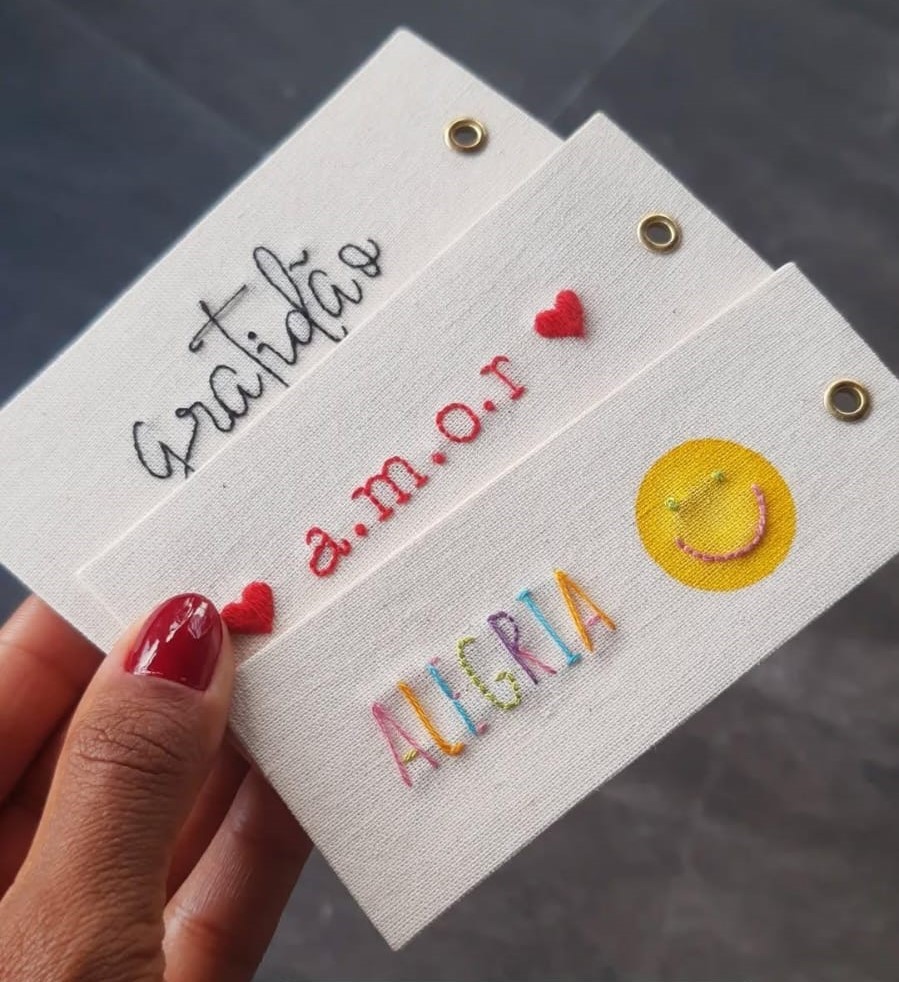 gratidão
a.m.o.r
ALEGRIA